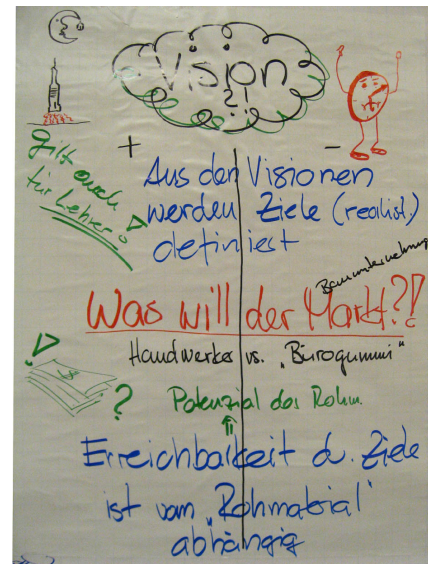 Vision
?!
+ -
Gilt auch
für Lehrer!
Aus den Visionen
werden Ziele (realist.)
definiert
Bauunternehmung
Was will der Markt?!
Handwerker vs. "Bürogummi"
!
$
?
Potenzial des Rohm.
⇑
Erreichbarkeit d. Ziele
ist vom "Rohmaterial"
abhängig